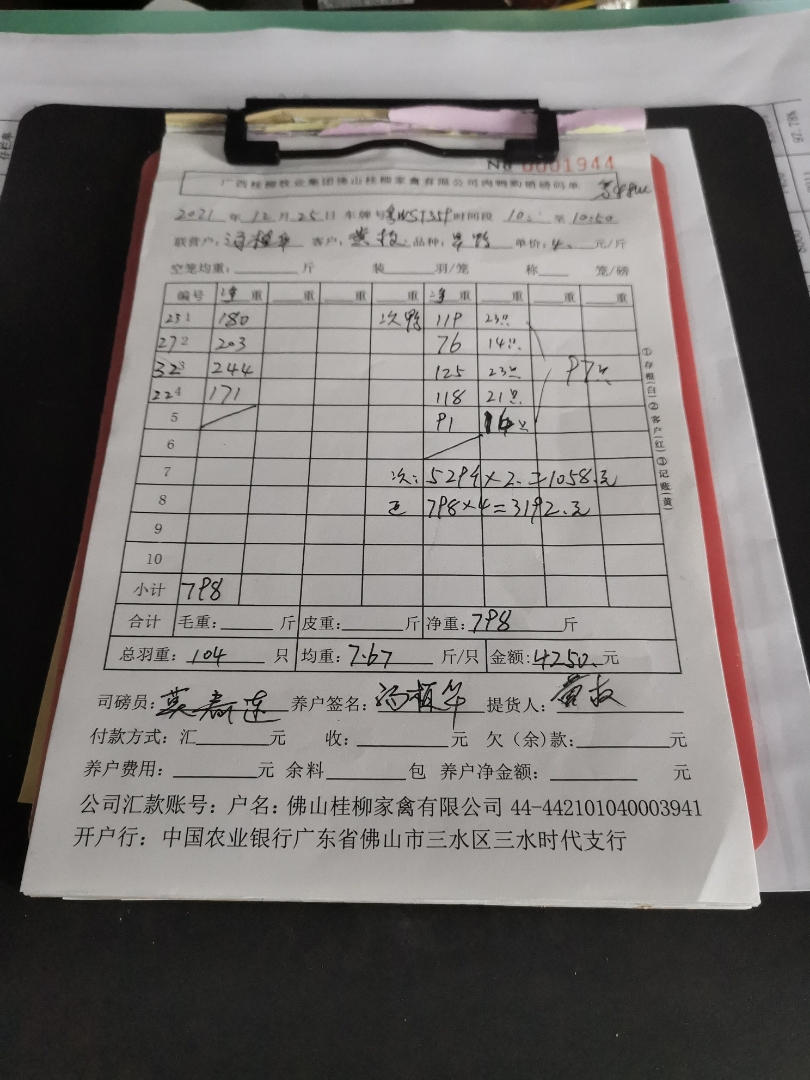 No 0001944
广西桂柳牧业集团佛山桂柳家禽有限公司肉鸭购销磅码单
2021 年 12 月 25 日 车牌号 时间段 10: 至 10:50
联营户: 客户: 黄 品种: 鸭 单价: 4. 元/斤
空笼均重: 斤 装 羽/笼 称 笼/磅
编号 净重 重 重 重 净重 重 重 重
23 1 180 次鸭 119 23只
27 2 203 76 14只
32 3 244 125 23只 97只
22 4 171 118 21只
5 91 16只
6
7 次: 529斤×2.=1058.元
8 正 798×4=3192.元
9
10
小计 798
合计 毛重: 斤 皮重: 斤 净重: 798 斤
总羽重: 104 只 均重: 7.67 斤/只 金额: 4250. 元
①存根(白)②客户(红)③记账(黄)
司磅员: 莫春莲 养户签名: 冯 华 提货人: 黄
付款方式: 汇 元 收: 元 欠(余)款: 元
养户费用: 元 余料 包 养户净金额: 元
公司汇款账号: 户名: 佛山桂柳家禽有限公司 44-442101040003941
开户行: 中国农业银行广东省佛山市三水区三水时代支行